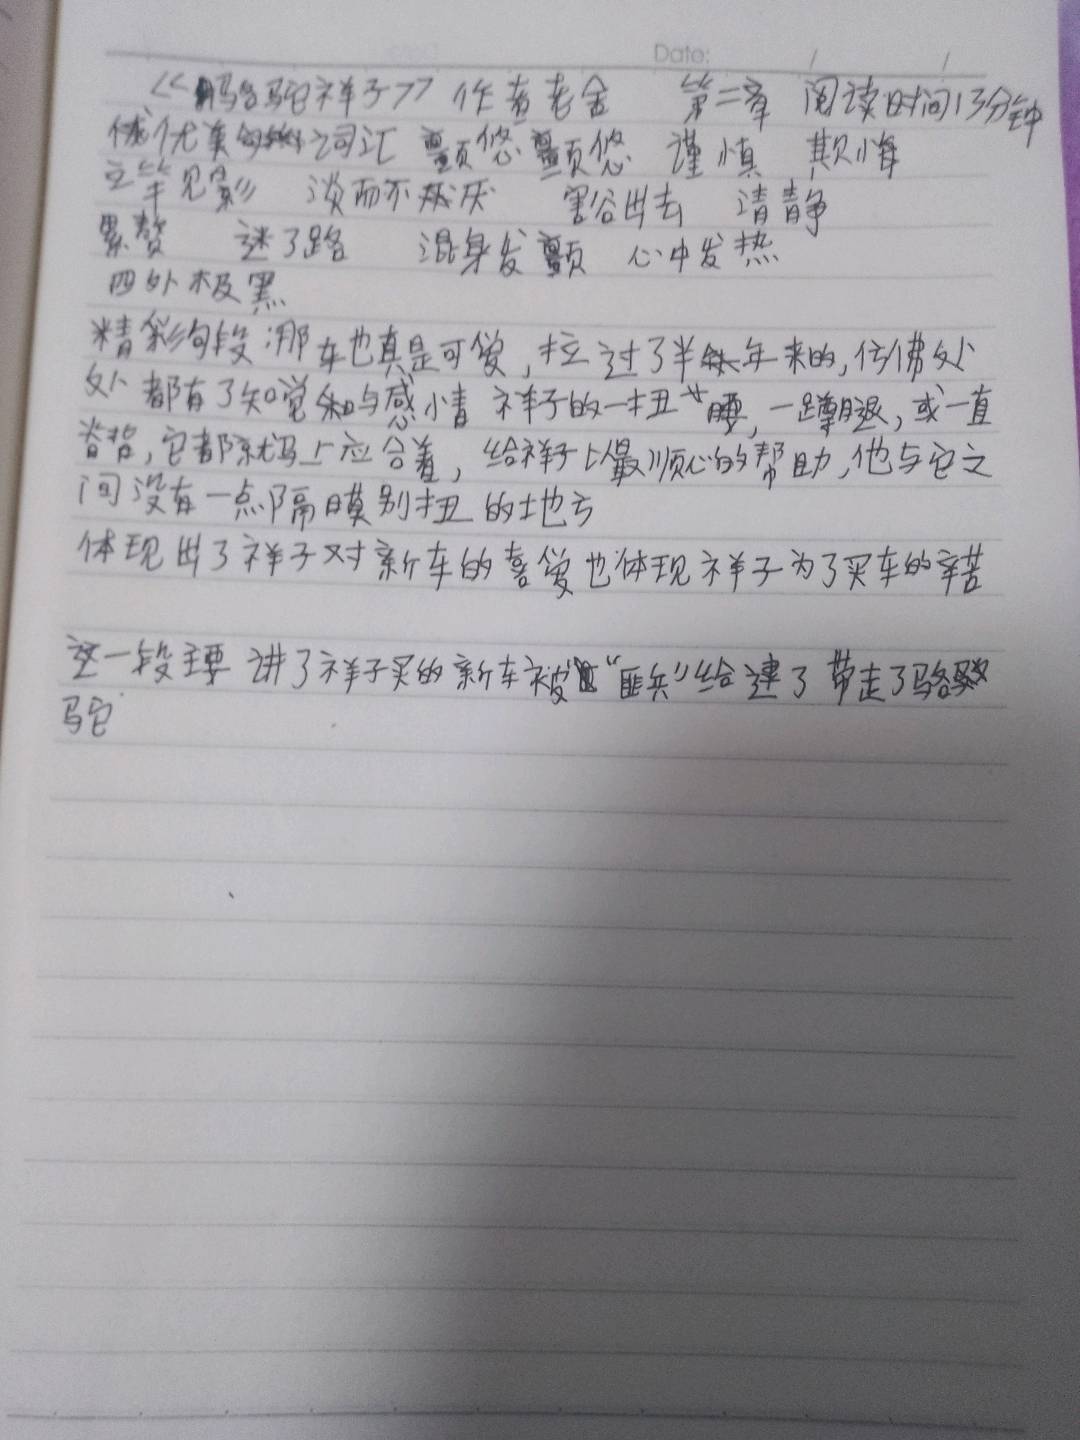 Date: / /
《骆驼祥子》 作者老舍 第二章 阅读时间13分钟
优美词汇 颤悠颤悠 谨慎 欺侮
立竿见影 淡而不厌 豁出去 清静
累赘 迷了路 混身发颤 心中发热
四外极黑
精彩句段:那车也真是可爱,拉过了半年来的,仿佛处
处都有了知觉与感情 祥子的一扭腰,一蹲腿,或一直
脊背,它都就马上应合着,给祥子以最顺心的帮助,他与它之
间没有一点隔膜别扭的地方
体现出了祥子对新车的喜爱也体现祥子为了买车的辛苦
这一段主要讲了祥子买的新车被“匪兵”给逮了 带走了骆
驼